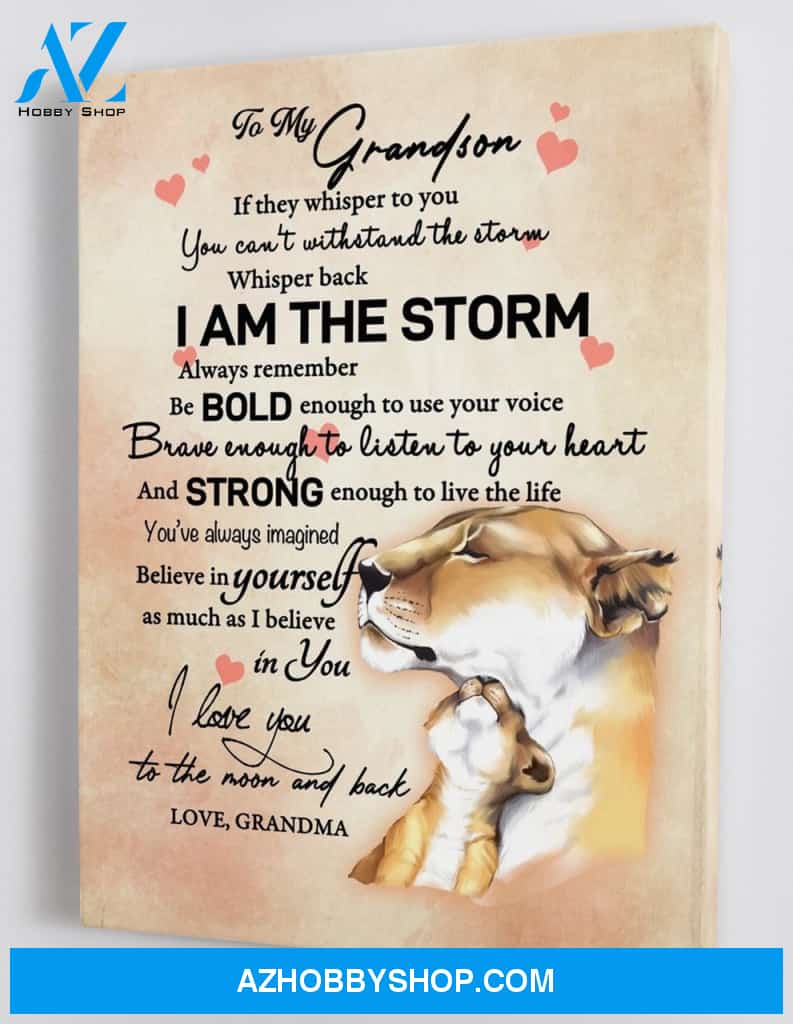 AZ
HOBBY SHOP
To My Grandson
If they whisper to you
You can't withstand the storm
Whisper back
I AM THE STORM
Always remember
Be BOLD enough to use your voice
Brave enough to listen to your heart
And STRONG enough to live the life
You've always imagined
Believe in yourself
as much as I believe
in You
I love you
to the moon and back
LOVE, GRANDMA
AZHOBBYSHOP.COM